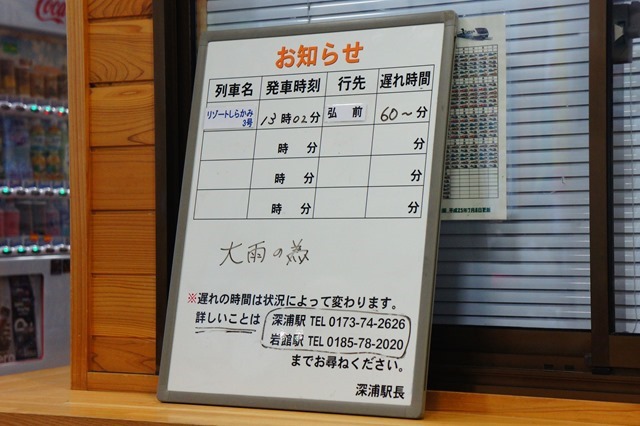 お知らせ
列車名 発車時刻 行先 遅れ時間
リゾートしらかみ 3号 13時02分 弘前 60～分
時 分 分
時 分 分
時 分 分
大雨の為
※遅れの時間は状況によって変わります。
詳しいことは 深浦駅 TEL 0173-74-2626
岩館駅 TEL 0185-78-2020
までお尋ねください。
深浦駅長